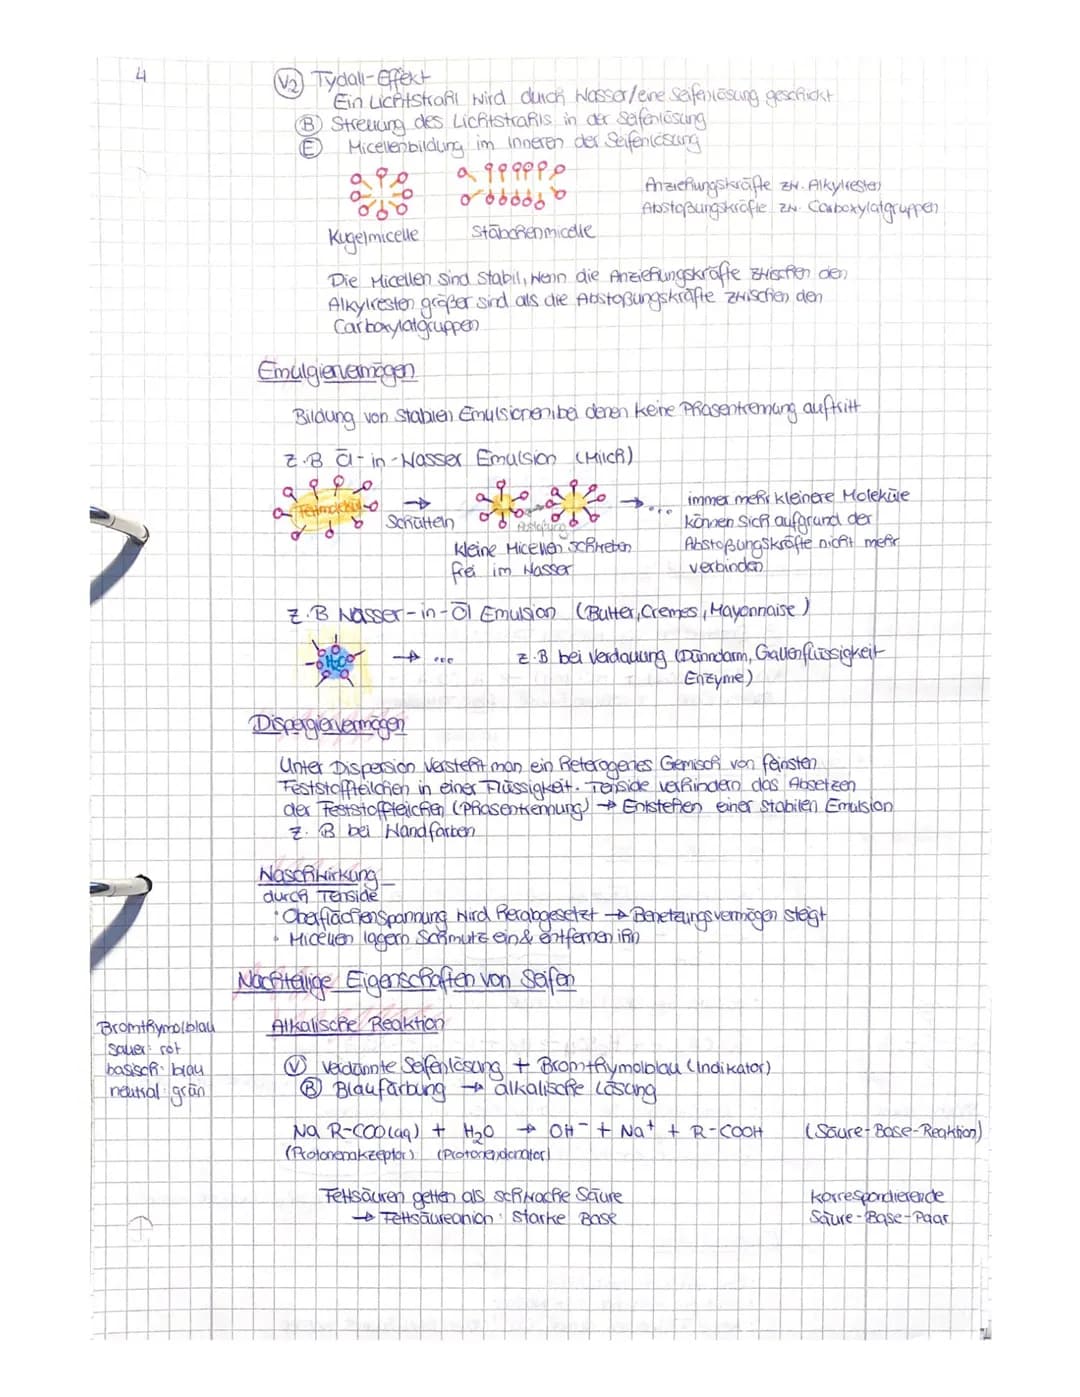 4
V2 Tydall-Effekt
Ein Lichtstrahl wird durch Wasser/eine Seifenlösung geschickt
B Streuung des Lichtstrahls in der Seifenlösung
E Micellenbildung im Inneren der Seifenlösung
Anziehungskräfte zw. Alkylresten
Abstoßungskräfte zw. Carboxylatgruppen
Kugelmicelle
Stäbchenmicelle
Die Micellen sind stabil, wenn die Anziehungskräfte zwischen den
Alkylresten größer sind als die Abstoßungskräfte zwischen den
Carboxylatgruppen
Emulgiervermögen
Bildung von stabilen Emulsionen, bei denen keine Phasentrennung auftritt
z.B Öl-in-Wasser Emulsion (Milch)
Fettmolekül → Schütteln
Abstoßung → ...
kleine Micellen schweben
frei im Wasser
immer mehr kleinere Moleküle
können sich aufgrund der
Abstoßungskräfte nicht mehr
verbinden
z.B Wasser-in-Öl Emulsion (Butter, Cremes, Mayonnaise)
H2O → ...
z.B bei Verdauung (Dünndarm, Gallenflüssigkeit
Enzyme)
Dispergiervermögen
Unter Dispersion versteht man ein heterogenes Gemisch von feinsten
Feststoffteilchen in einer Flüssigkeit. Tenside verhindern das Absetzen
der Feststoffteilchen (Phasentrennung) → Entstehen einer stabilen Emulsion
z. B bei Wandfarben
Waschwirkung
durch Tenside
· Oberflächenspannung wird herabgesetzt → Benetzungsvermögen steigt
· Micellen lagern Schmutz ein & entfernen ihn
Nachteilige Eigenschaften von Seifen
Alkalische Reaktion
Bromthymolblau
sauer: rot
basisch: blau
neutral: grün
V verdünnte Seifenlösung + Bromthymolblau (Indikator)
B Blaufärbung → alkalische Lösung
Na R-COO(aq) + H2O → OH⁻ + Na⁺ + R-COOH (Säure-Base-Reaktion)
(Protonenakzeptor) (Protonendonator)
Fettsäuren gelten als schwache Säure
→ Fettsäureanion: starke Base
korrespondierende
Säure-Base-Paar